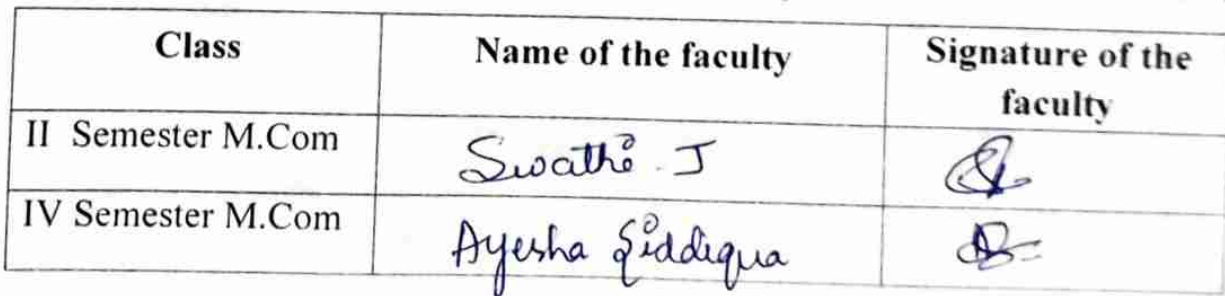 Class Name of the faculty Signature of the
faculty
II Semester M.Com Swathi J
IV Semester M.Com Ayesha Siddiqua